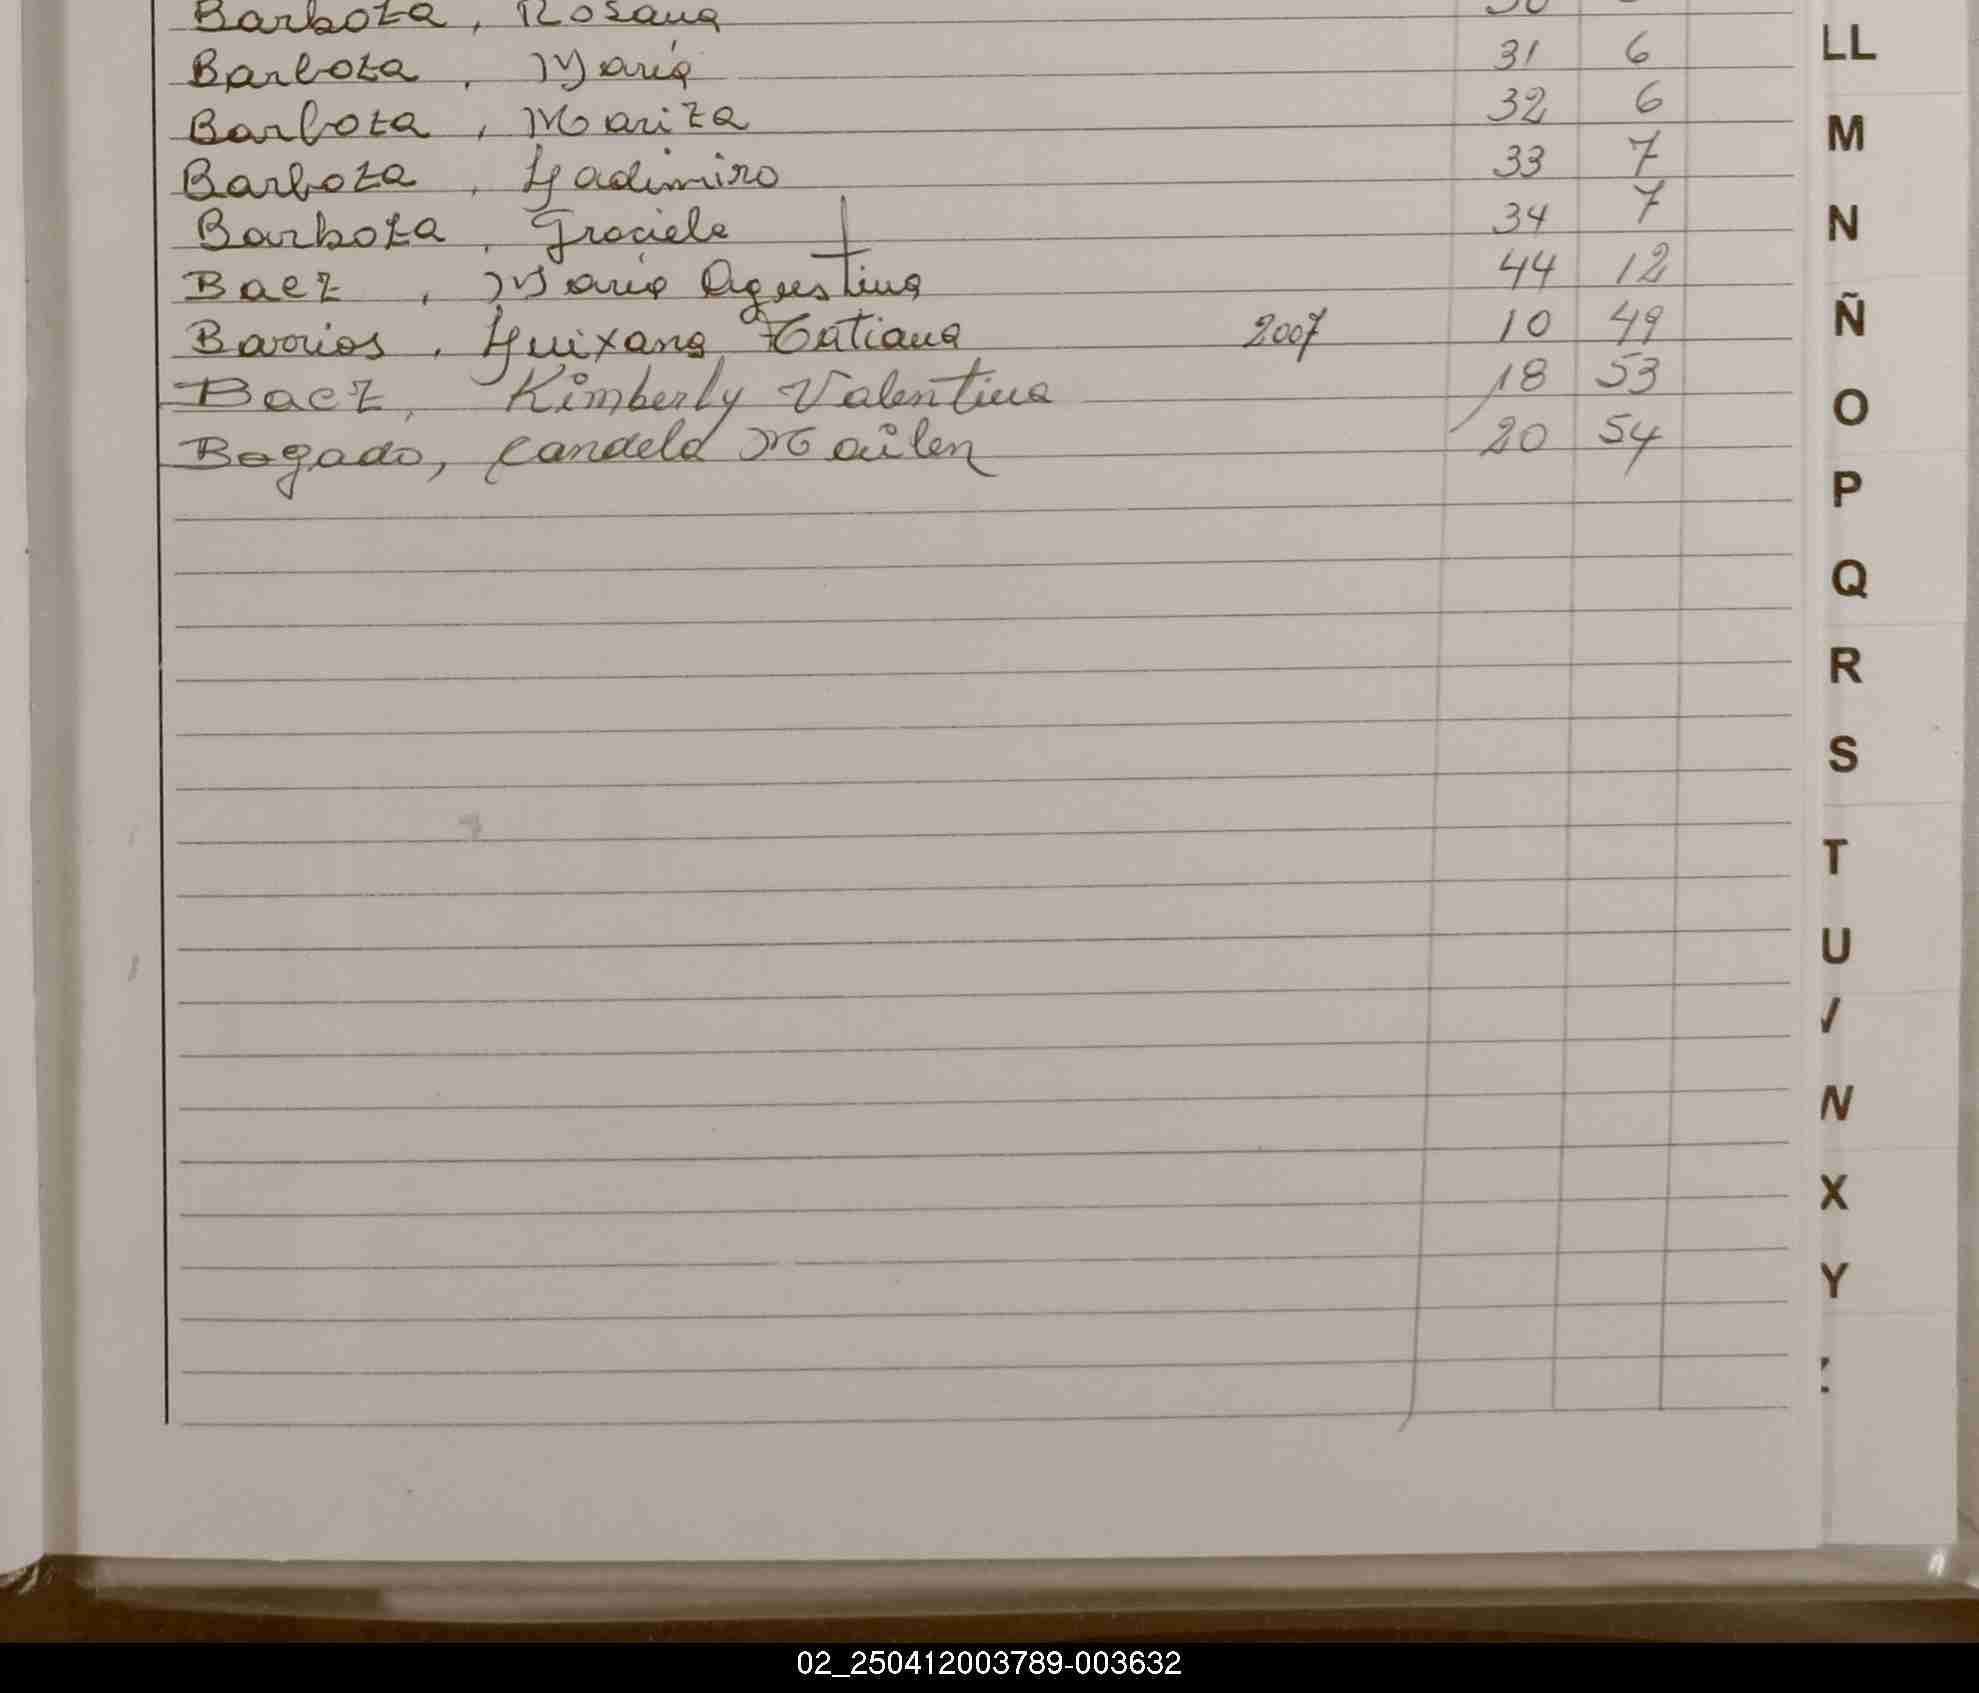 Barboza, Rosana
Barboza, María 31 6
Barboza, Mariza 32 6
Barboza, Ladimiro 33 7
Barboza, Graciela 34 7
Baez, María Agustina 44 12
Barrios, Luixana Tatiana 2007 10 49
Baez, Kimberly Valentina 18 53
Bogado, Candela Mailen 20 54
LL
M
N
Ñ
O
P
Q
R
S
T
U
X
Y
02_250412003789-003632